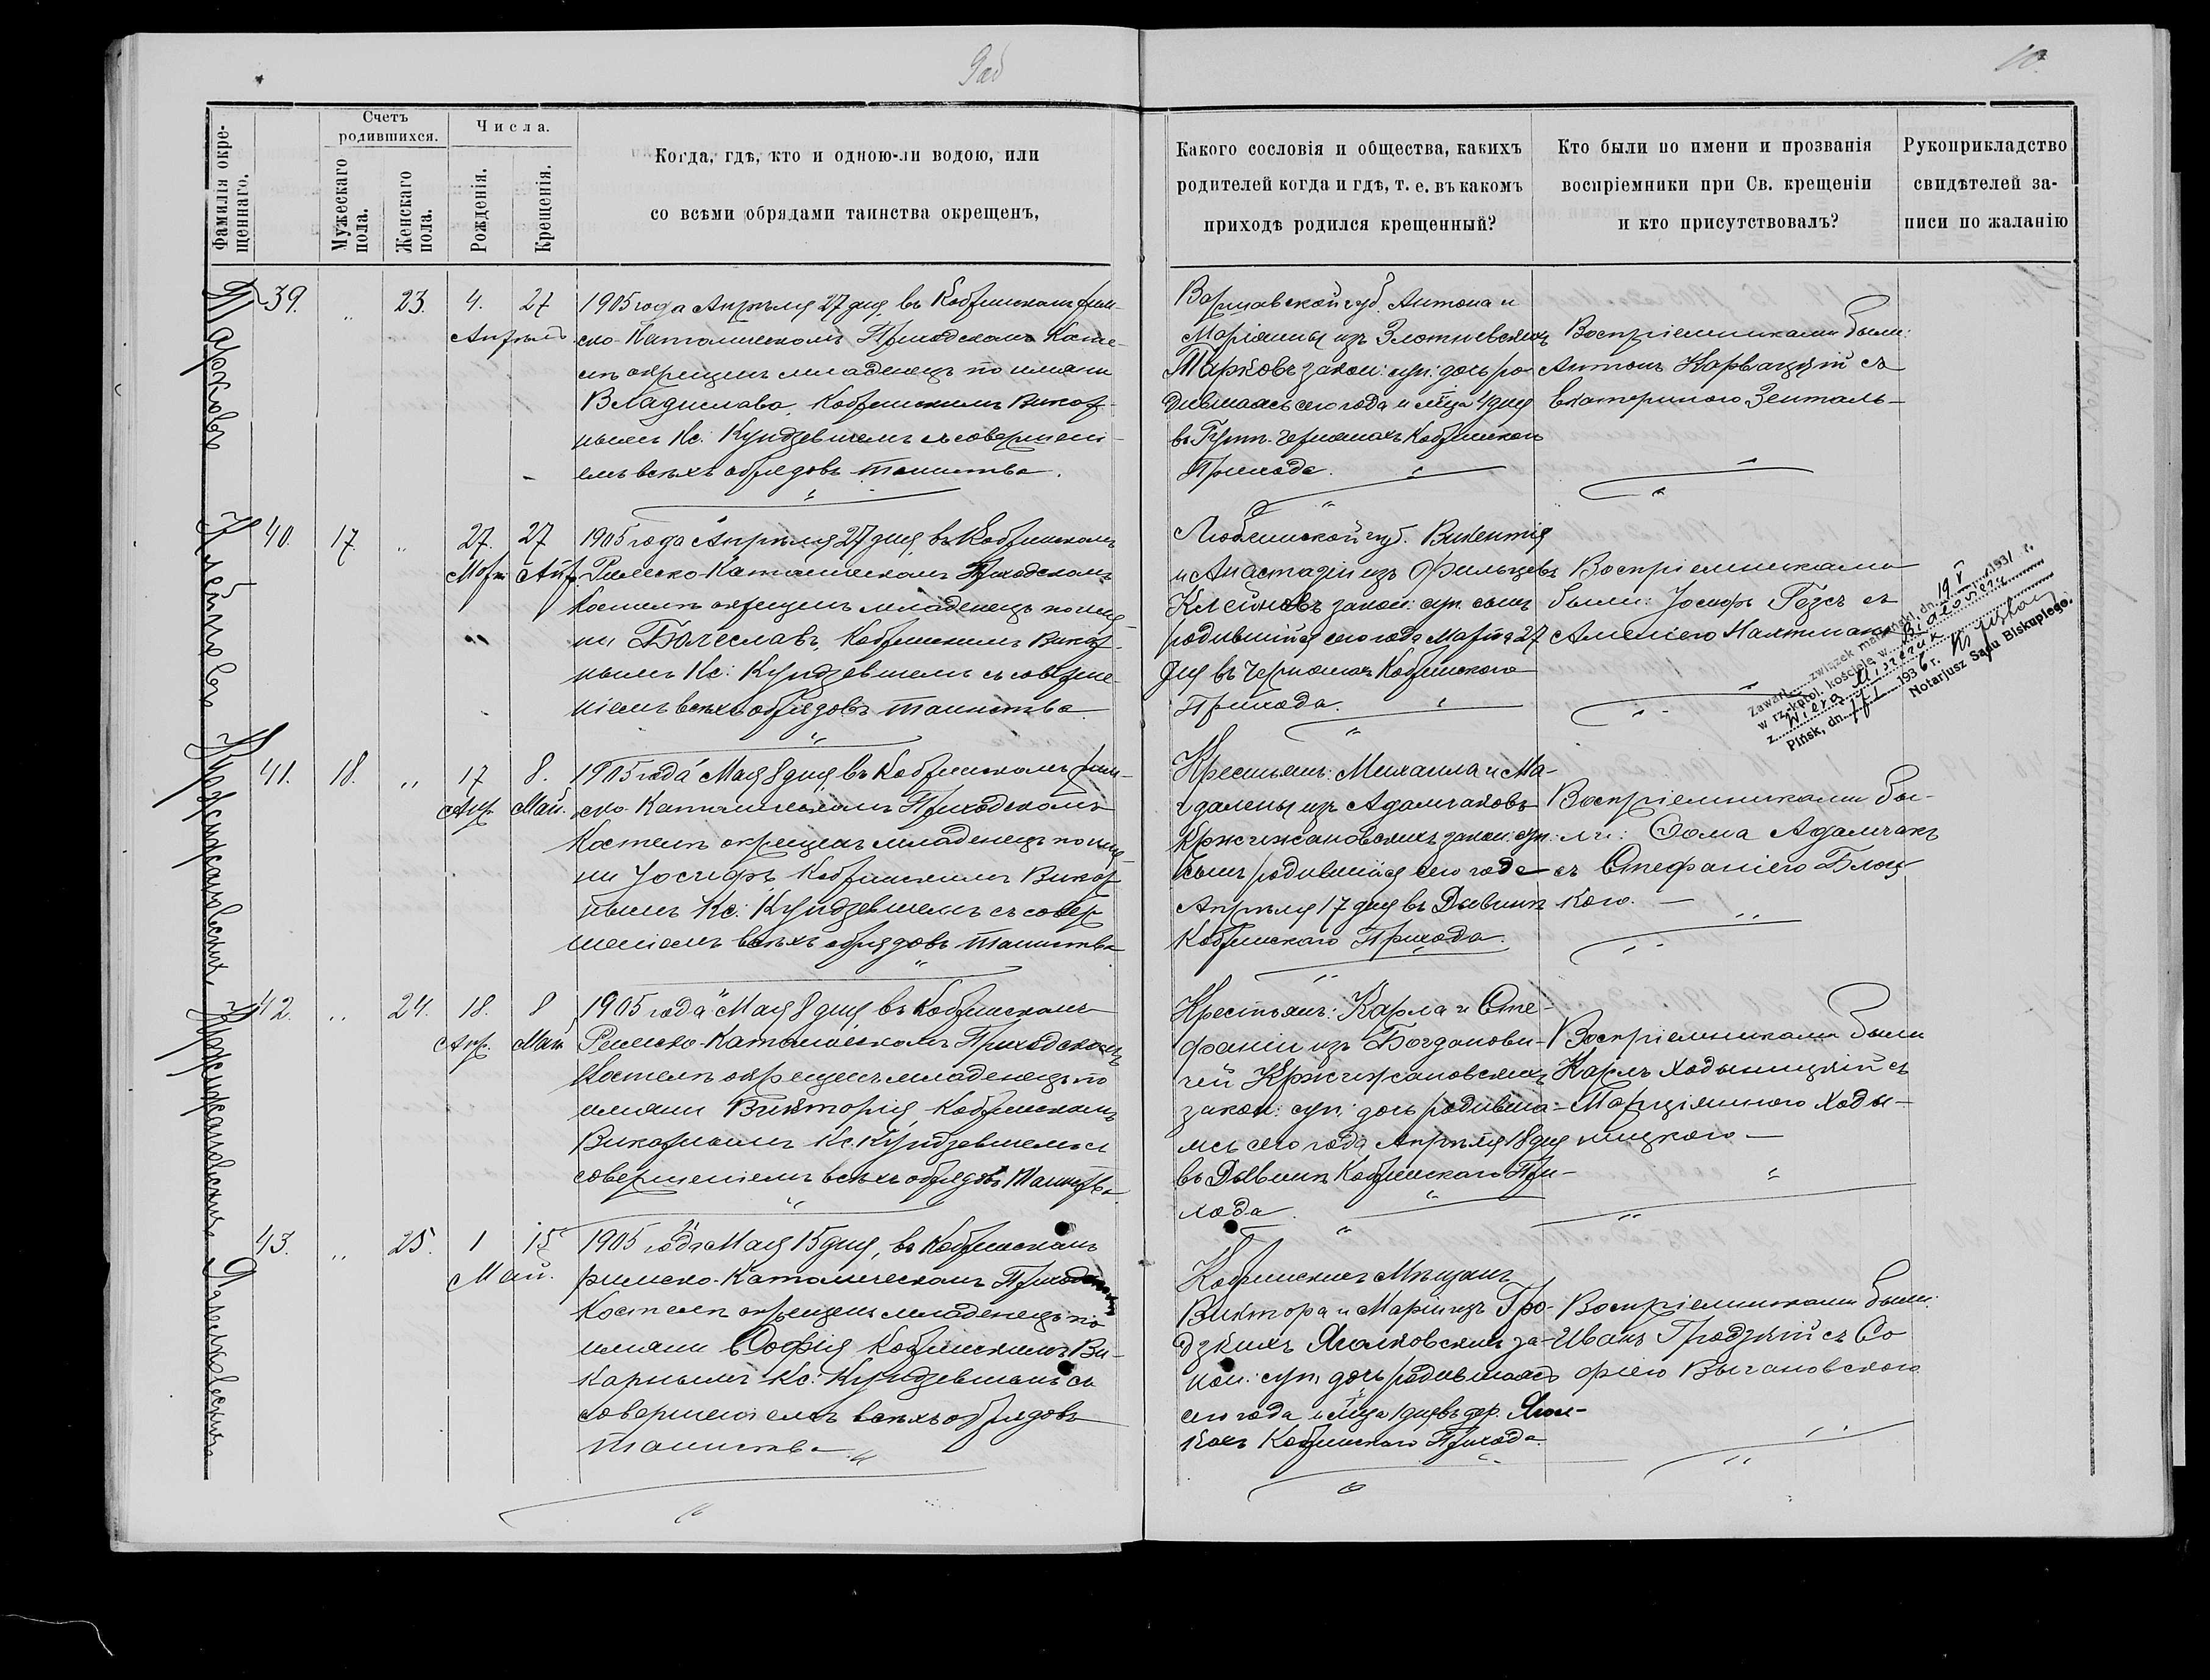 9об
10.
Фамилія окре-
щеннаго.
Счетъ
родившихся.
Мужескаго
пола.
Женскаго
пола.
Числа.
Рожденія.
Крещенія.
Когда, гдѣ, кто и одною-ли водою, или
со всѣми обрядами таинства окрещенъ,
Какого сословія и общества, какихъ
родителей когда и гдѣ, т. е. въ какомъ
приходѣ родился крещенный?
Кто были по имени и прозванія
воспріемники при Св. крещеніи
и кто присутствовалъ?
Рукоприкладство
свидѣтелей за-
писи по жаланію
Тарковъ
39. " 23. 4. 27
Апрѣль
1905 года Апрѣля 27 дня въ Кобринскомъ рим-
ско-Католическомъ Приходскомъ Косте-
лѣ окрещенъ младенецъ по имени
Владислава, Кобринскимъ Викар-
нымъ Кс. Кундзевичемъ съ совершені-
емъ всѣхъ обрядовъ таинства.
Варшавской губ. Антона и
Маріанны изъ Злотковскихъ
Тарковъ закон: суп: дочь ро-
дившаяся сего года и мѣсяца 4 дня
въ Черняхахъ Кобринскаго
Прихода.
Воспріемниками были:
Антонъ Карвацкій съ
Екатериною Зенталь-
Клейновъ
40. 17. " 27. 27
Март. Апр.
1905 года Апрѣля 27 дня въ Кобринскомъ
Римско-Католическомъ Приходскомъ
Костелѣ окрещенъ младенецъ по име-
ни Болеславъ, Кобринскимъ Викар-
нымъ Кс: Кундзевичемъ съ соверше-
ніемъ всѣхъ обрядовъ таинства.
Люблинской губ. Викентія
и Анастазіи изъ Фильцевъ
Клейновъ закон: суп. сынъ
родившійся сего года Марта 27
дня въ Черняхахъ Кобринскаго
Прихода.
Воспріемниками
были: Іосифъ Гозсъ съ
Амеліею
Zawarł związek małżeński dn. 19 V 1931 r.
w rz.-katol. kościele w
z Wierą
Pińsk, dn. 193 6 r.
Notarjusz Sądu Biskupiego.
Кржижановскихъ
41. 18. " 17 8.
Апр. Май.
1905 года Мая 8 дня въ Кобринскомъ рим-
ско-Католическомъ Приходскомъ
Костелѣ окрещенъ младенецъ по име-
ни Іосифъ, Кобринскимъ Викар-
нымъ Кс: Кундзевичемъ съ совер-
шеніемъ всѣхъ обрядовъ таинства.
Крестьянъ: Михаила и Ма-
гдалены изъ Адамчаковъ
Кржижановскихъ закон: суп:
сынъ родившійся сего года
Апрѣля 17 дня въ Дывинѣ
Кобринскаго Прихода.
Воспріемниками бы-
ли: Ѳома Адамчакъ
съ Стефаніею Блоц-
кою.
Кржижановскихъ
42. " 24. 18. 8
Апр. Май
1905 года Мая 8 дня въ Кобринскомъ
Римско-Католическомъ Приходскомъ
Костелѣ окрещенъ младенецъ по
имени Викторія, Кобринскимъ
Викарнымъ Кс. Кундзевичемъ съ
совершеніемъ всѣхъ обрядовъ Таинства.
Крестьянъ: Карла и Сте-
фаніи изъ Богданови-
чей Кржижановскихъ
закон: суп: дочь родивша-
яся сего года Апрѣля 18 дня
въ Дывинѣ Кобринскаго При-
хода.
Воспріемниками были
Карлъ Ходыницкій съ
Марціянною Ходы-
ницкою
Ягалковскихъ
43. " 25. 1 15
Май.
1905 года Мая 15 дня, въ Кобринскомъ
римско-Католическомъ Приходскомъ
Костелѣ окрещенъ младенецъ по
имени Софія Кобринскимъ Ви-
карнымъ Кс: Кундзевичемъ съ
совершеніемъ всѣхъ обрядовъ
таинства.
Кобринскихъ Мѣщанъ
Виктора и Маріи изъ Гро-
дзкихъ Ягалковскихъ за-
кон: суп. дочь родившаяся
сего года и мѣсяца 1 дня въ дер.
Кобринскаго Прихода.
Воспріемниками были:
Иванъ Гродзкій съ Со-
фіею Вычановскою